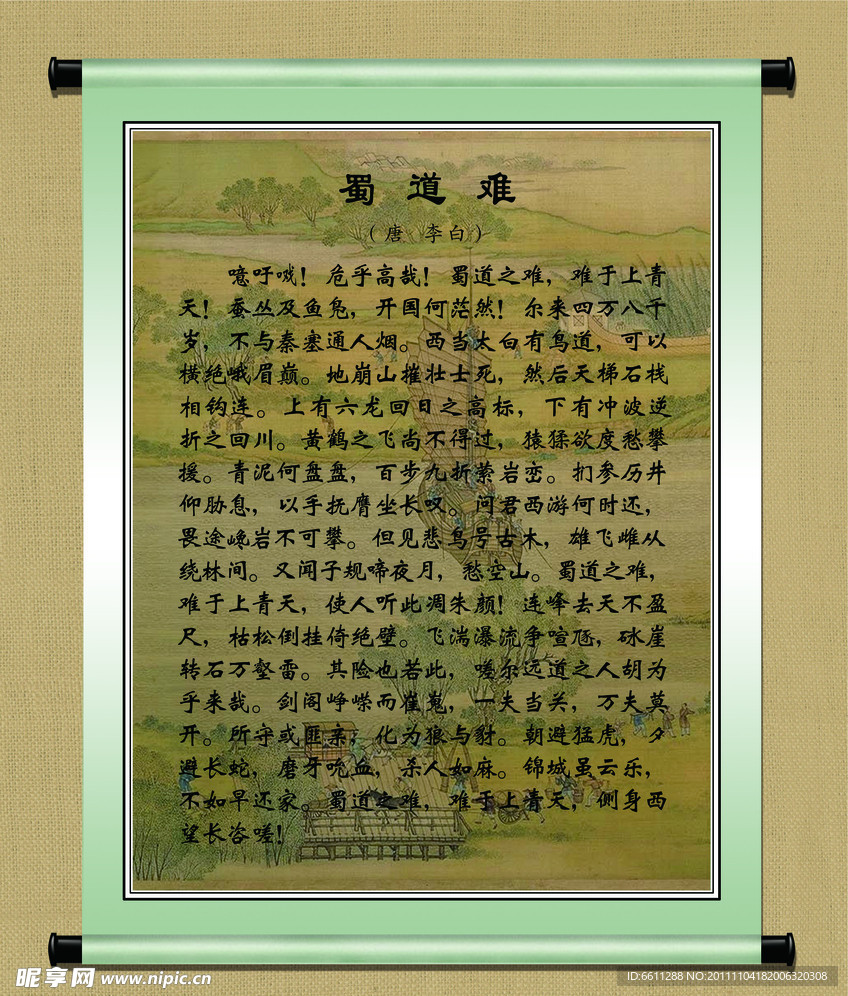 蜀道难
(唐 李白)
噫吁嚱！危乎高哉！蜀道之难，难于上青
天！蚕丛及鱼凫，开国何茫然！尔来四万八千
岁，不与秦塞通人烟。西当太白有鸟道，可以
横绝峨眉巅。地崩山摧壮士死，然后天梯石栈
相钩连。上有六龙回日之高标，下有冲波逆
折之回川。黄鹤之飞尚不得过，猿猱欲度愁攀
援。青泥何盘盘，百步九折萦岩峦。扪参历井
仰胁息，以手抚膺坐长叹。问君西游何时还，
畏途巉岩不可攀。但见悲鸟号古木，雄飞雌从
绕林间。又闻子规啼夜月，愁空山。蜀道之难，
难于上青天，使人听此凋朱颜！连峰去天不盈
尺，枯松倒挂倚绝壁。飞湍瀑流争喧豗，砯崖
转石万壑雷。其险也若此，嗟尔远道之人胡为
乎来哉。剑阁峥嵘而崔嵬，一夫当关，万夫莫
开。所守或匪亲，化为狼与豺。朝避猛虎，夕
避长蛇，磨牙吮血，杀人如麻。锦城虽云乐，
不如早还家。蜀道之难，难于上青天，侧身西
望长咨嗟！
昵享网 www.nipic.cn
ID:6611288 NO:20111104182006320308